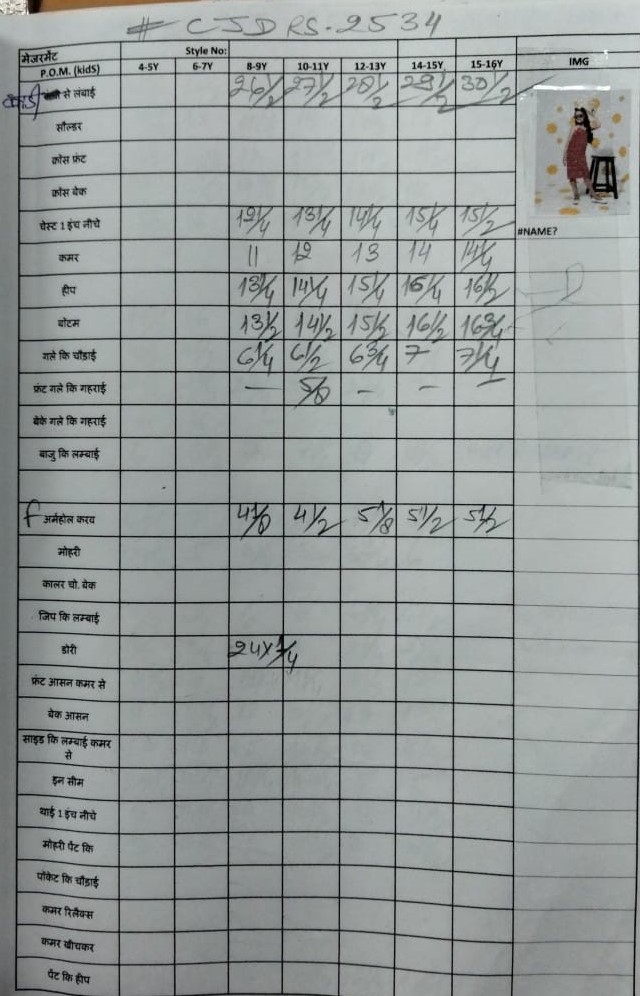 # CJDRS-2534
मेजरमेंट Style No:
P.O.M. (kidS) 4-5Y 6-7Y 8-9Y 10-11Y 12-13Y 14-15Y 15-16Y IMG
से लंबाई 26 1/2 27 1/2 28 1/2 29 1/2 30 1/2
सौल्डर
क्रोस फ्रंट
क्रोस बेक
चेस्ट 1 इंच नीचे 12 1/4 13 1/4 14 1/4 15 1/4 15 1/2 #NAME?
कमर 11 12 13 14 14 1/4
हीप 13 1/4 14 1/4 15 1/4 16 1/2
बॉटम 13 1/2 14 1/2 15 1/2 16 1/2 16 3/4
गले कि चौडाई 6 1/4 6 1/2 6 3/4 7 7 1/4
फ्रंट गले कि गहराई — 5/8 — — —
बेके गले कि गहराई
बाजु कि लम्बाई
f अर्महोल करव 4 1/8 4 1/2 5 1/8 5 1/2 5 1/2
मोहरी
कालर चो. बेक
जिप कि लम्बाई
डोरी 24 X 1/4
फ्रंट आसन कमर से
बेक आसन
साइड कि लम्बाई कमर
से
इन सीम
थाई 1 इंच नीचे
मोहरी पेंट कि
पॉकेट कि चौड़ाई
कमर रिलैक्स
कमर खीचकर
पेंट कि हीप